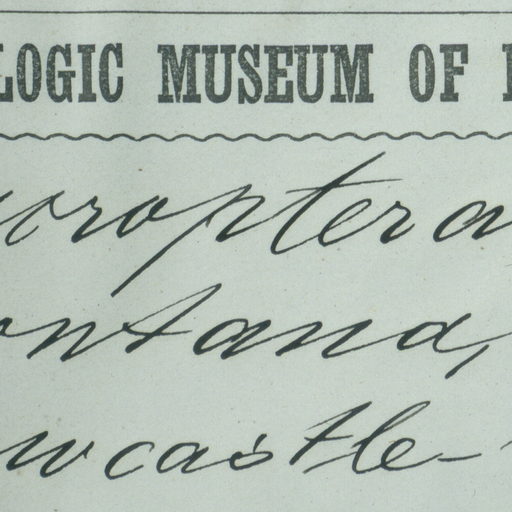 LOGIC MUSEUM OF
roptera
ontana,
wcastle-